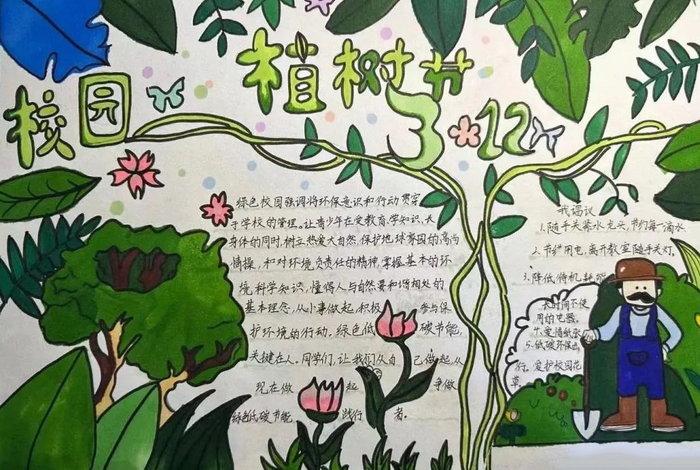 校园
植树节
3 12
绿色校园强调将环保意识和行动贯穿
于学校的管理。让青少年在受教育、学知识、长
身体的同时,树立热爱大自然、保护地球家园的高尚
情操,和对环境负责任的精神,掌握基本的环
境科学知识,懂得人与自然要和谐相处的
基本理念,从小事做起,积极 参与保
护环境的行动,绿色低 碳节能,
关键在人。同学们,让我们从自 己做起,从
现在做 起 争做
绿色低碳节能 践行 者。
我倡议
1.随手关紧水龙头,节约每一滴水
2.节约用电,离开教室随手关灯。
3.降低待机
长时间不使
用的电器。
4.爱惜纸张
5.低碳环保出
行。爱护校园花
草。